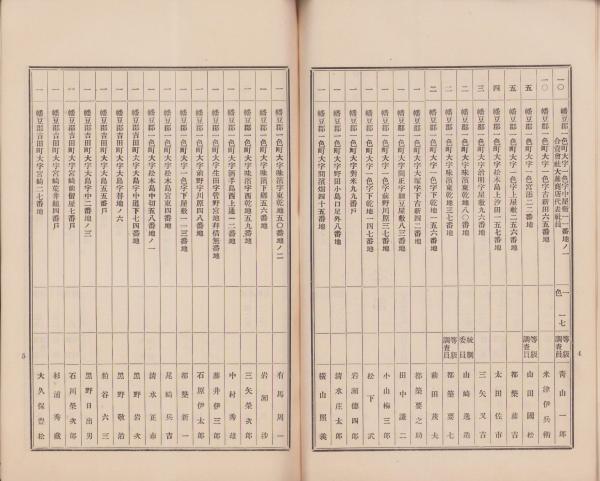 一〇 幡豆郡一色町大字一色字中屋敷一一番地ノ一 一色 一七 等級調査員 青山一郎
合資會社大黒商店代表社員
一〇 幡豆郡一色町大字一色字古新田六五番地 米津伊兵衛
五 幡豆郡一色町大字一色字宮添二二番地 等級調査員 山田國松
五 幡豆郡一色町大字一色字上屋敷二五六番地 都築藤吉
四 幡豆郡一色町大字松木島字上汐田一五七番地 太田佐市
三 幡豆郡一色町大字治明字屋敷九六番地 三矢又吉
二 幡豆郡一色町大字味浜字東乾地八〇番地 統制委員 山崎逸造
二 幡豆郡一色町大字味浜字東乾地三七番地 等級調査員 都築要七
二 幡豆郡一色町大字一色字下乾地一五六番地 前田茂夫
一 幡豆郡一色町大字大塚字下古新四二番地 都築要之助
一 幡豆郡一色町大字開正字細豆屋敷八三番地 田中謙二
一 幡豆郡一色町大字一色字前野川原三七番地 小山梅三郎
一 幡豆郡一色町大字一色字下乾地一四一番地 松下武
一 幡豆郡一色町大字對米九九番戸 岩瀬德四郎
一 幡豆郡一色町大字野田小島口足外八番地 清水庄太郎
一 幡豆郡一色町大字間濱畑四十五番地 横山照義
4
一 幡豆郡一色町大字味浜字東乾地五〇番地ノ二 有馬周一
一 幡豆郡一色町大字味浜字下郷五六番地 岩瀬渉
一 幡豆郡一色町大字味浜字西乾地五九番地 三矢榮次郎
一 幡豆郡一色町大字酒手島西上通一二番地 中村秀雄
一 幡豆郡一色町大字生田字菅野宮地拜借無番地 藤井伊三郎
一 幡豆郡一色町大字前野字川原四八番地 石原伊太郎
一 幡豆郡一色町大字一色字下屋敷一一三番地 都築新一
一 幡豆郡一色町大字松木島字中切五八番地ノ一 尾崎兵吉
一 幡豆郡一色町大字松木島宮東四番地 清水正市
一 幡豆郡吉田町大字大島字中道下七四番地 黒野岩次
一 幡豆郡吉田町大字大島字替地ノ六 黒野敬治
一 幡豆郡吉田町大字大島五五番戸 粕谷六三
一 幡豆郡吉田町大字大島字中二番地ノ三 黒野日出男
一 幡豆郡吉田町大字宮崎仙僧屋七番戸 石川榮次郎
一 幡豆郡吉田町大字宮崎荒井組四番戸 杉浦秀藏
一 幡豆郡吉田町大字宮崎二七番地 大久保豊松
5